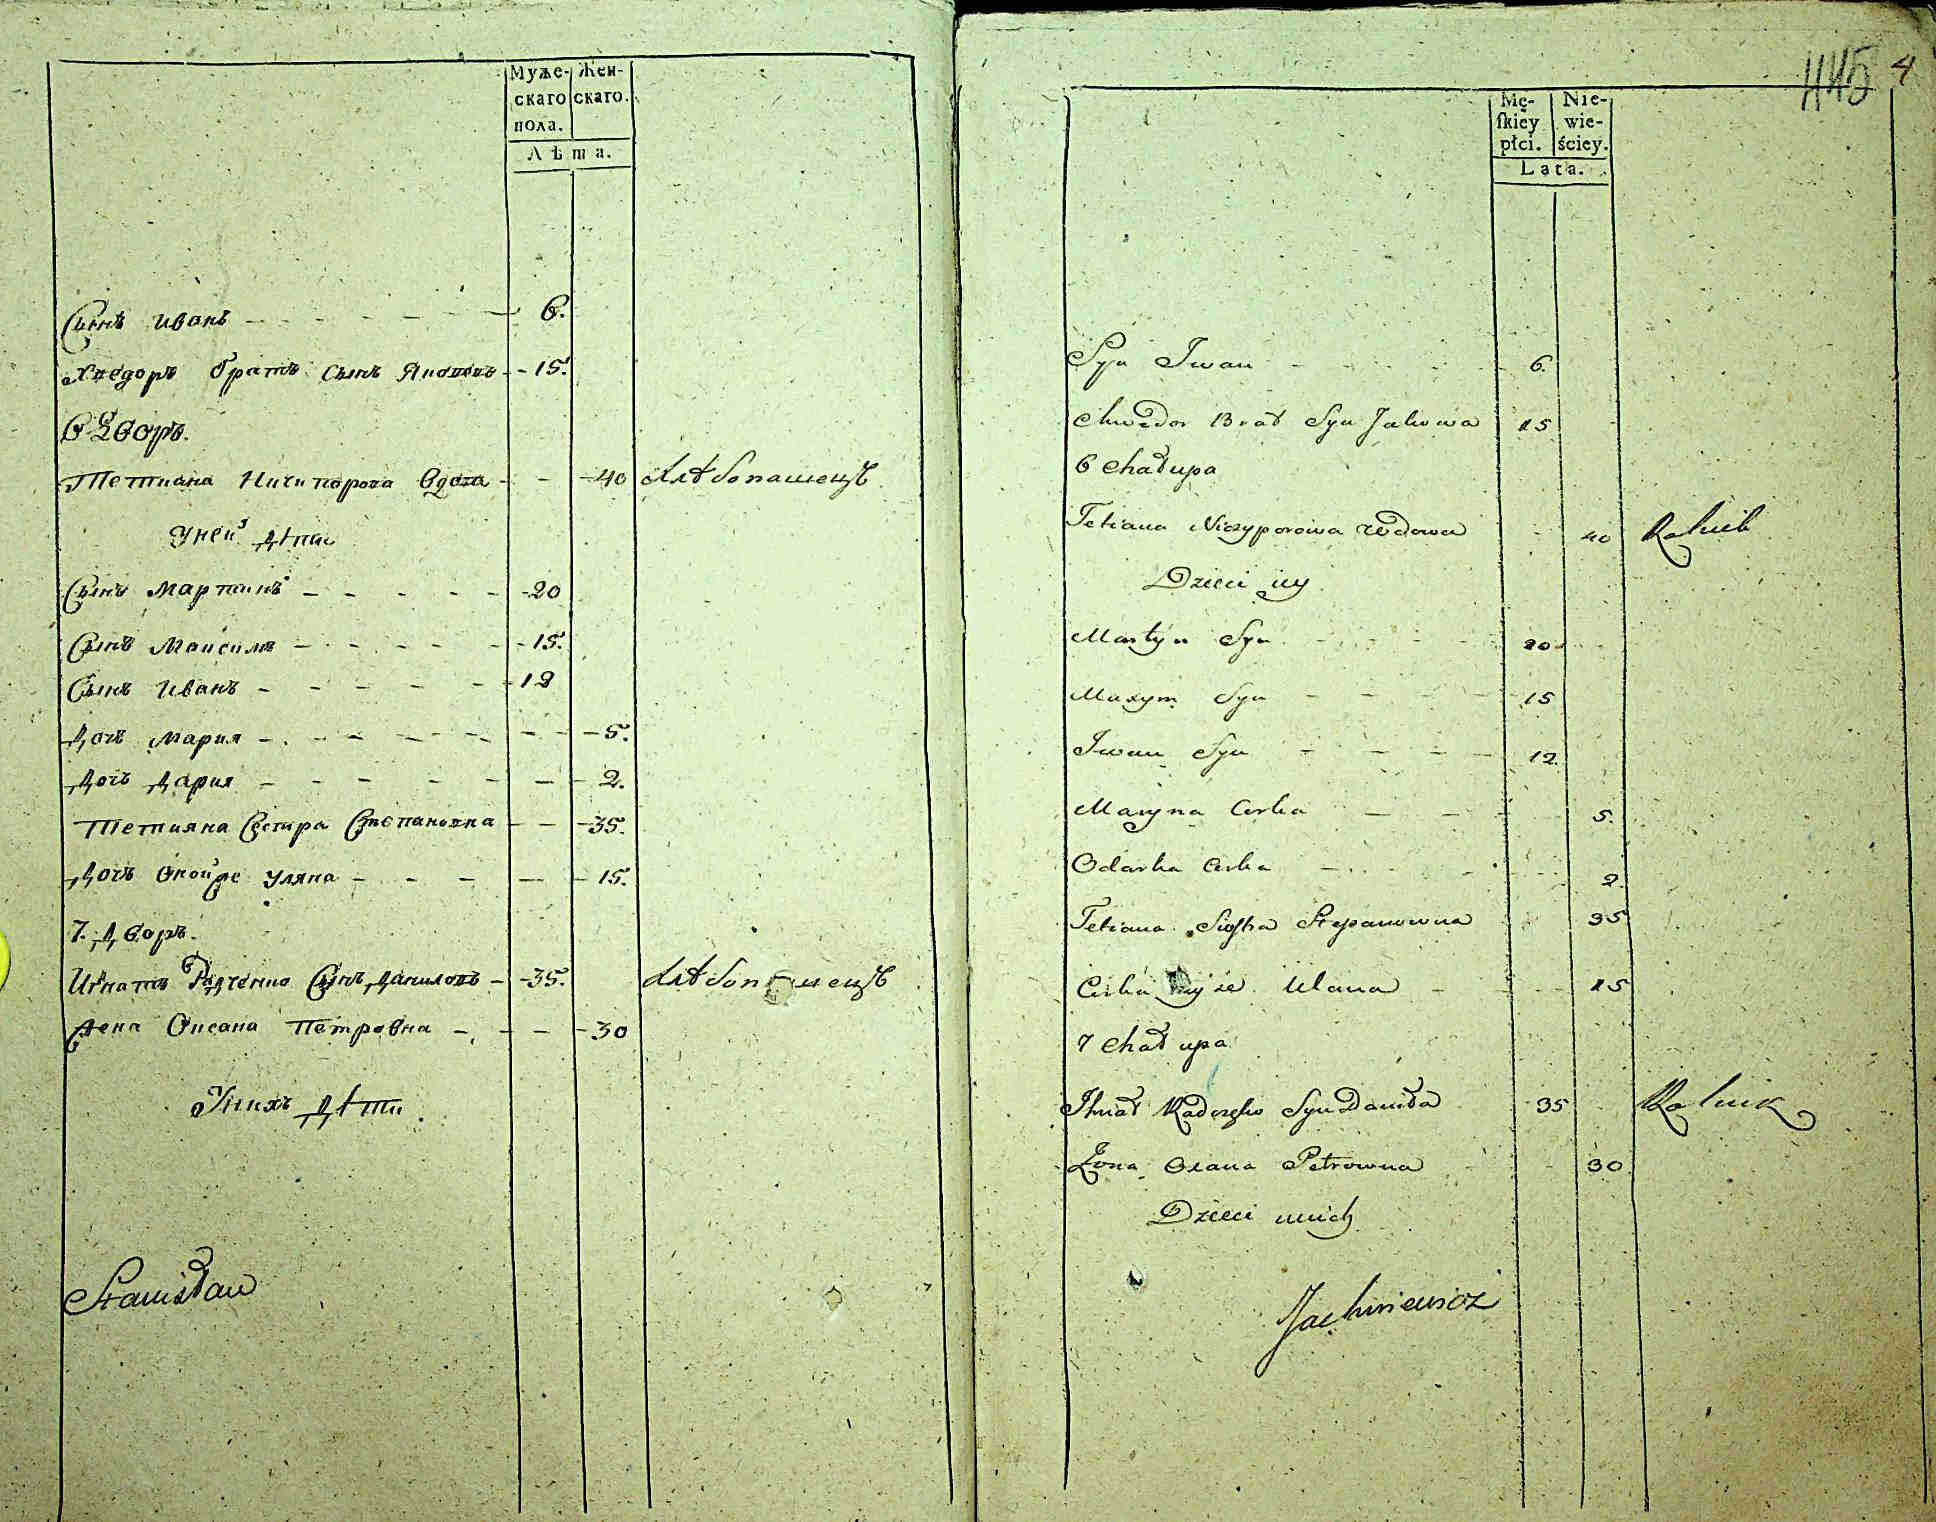 Муже- Жен-
скаго скаго.
пола.
Лѣта.
Сынъ Иванъ 6.
Хведоръ братъ Сынъ Якововъ 15.
6 Дворъ.
Тетиана Ничипорова Вдова 40 хлѣбопашецъ
У ней дѣти
Сынъ Мартинъ 20
Сынъ Максимъ 15.
Сынъ Иванъ 12
Дочь Мария 5.
Дочь Дария 2.
Тетияна Сестра Степановна 35.
Дочь Оной же Уляна 15.
7. Дворъ.
Игнатъ Радченко Сынъ Даниловъ 35. хлѣбопашецъ
Жена Оксана Петровна 30
У нихъ Дѣти
Stanisław
445 4
Mę- Nie-
ſkiey wie-
płci. ściey.
Lata.
Syn Iwan 6.
Chwedor Brat Syn Jakowa 15
6 Chałupa
Tetiana Niczyporowa Wdowa 40 Rolnik
Dzieci iey
Martyn Syn 20
Maxym Syn 15
Iwan Syn 12.
Maryna Corka 5.
Odarka Corka 2.
Tetiana Siostra Stepanowna 35
Corka teyże Ulana 15
7 Chałupa
Ihnat Radczęko Syn Daniła 35 Rolnik
Żona Oxana Petrowna 30
Dzieci u nich
Jachniewicz